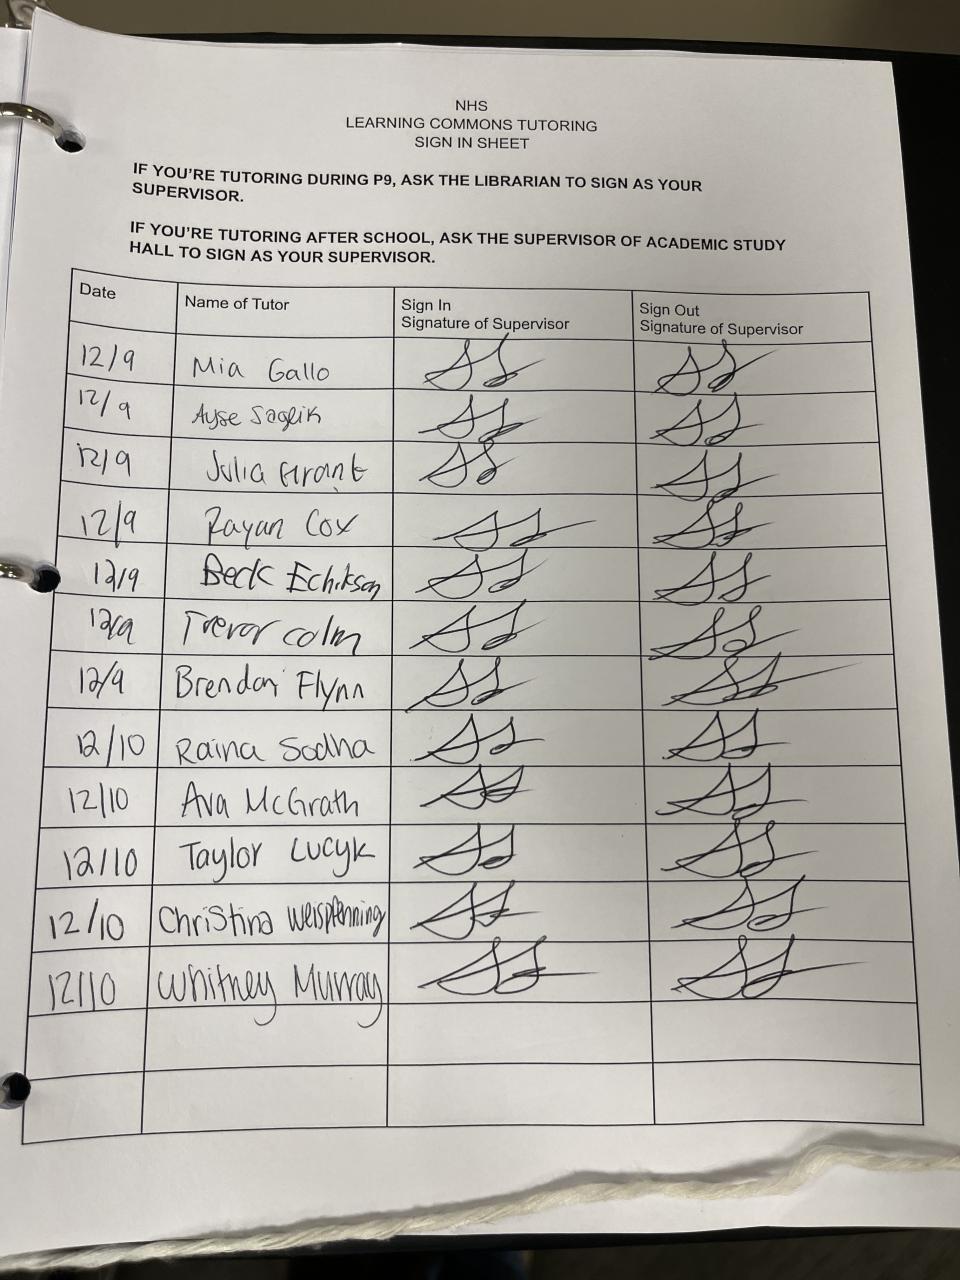 NHS
LEARNING COMMONS TUTORING
SIGN IN SHEET
IF YOU'RE TUTORING DURING P9, ASK THE LIBRARIAN TO SIGN AS YOUR
SUPERVISOR.
IF YOU'RE TUTORING AFTER SCHOOL, ASK THE SUPERVISOR OF ACADEMIC STUDY
HALL TO SIGN AS YOUR SUPERVISOR.
Date Name of Tutor Sign In Sign Out
Signature of Supervisor Signature of Supervisor
12/9 Mia Gallo
12/9 Ayse Saglik
12/9 Julia Grant
12/9 Rayan Cox
12/9 Beck Echikson
12/9 Trevor Colm
12/9 Brendan Flynn
12/10 Raina Sodha
12/10 Ava McGrath
12/10 Taylor Lucyk
12/10 Christina Weispfenning
12/10 Whitney Murray